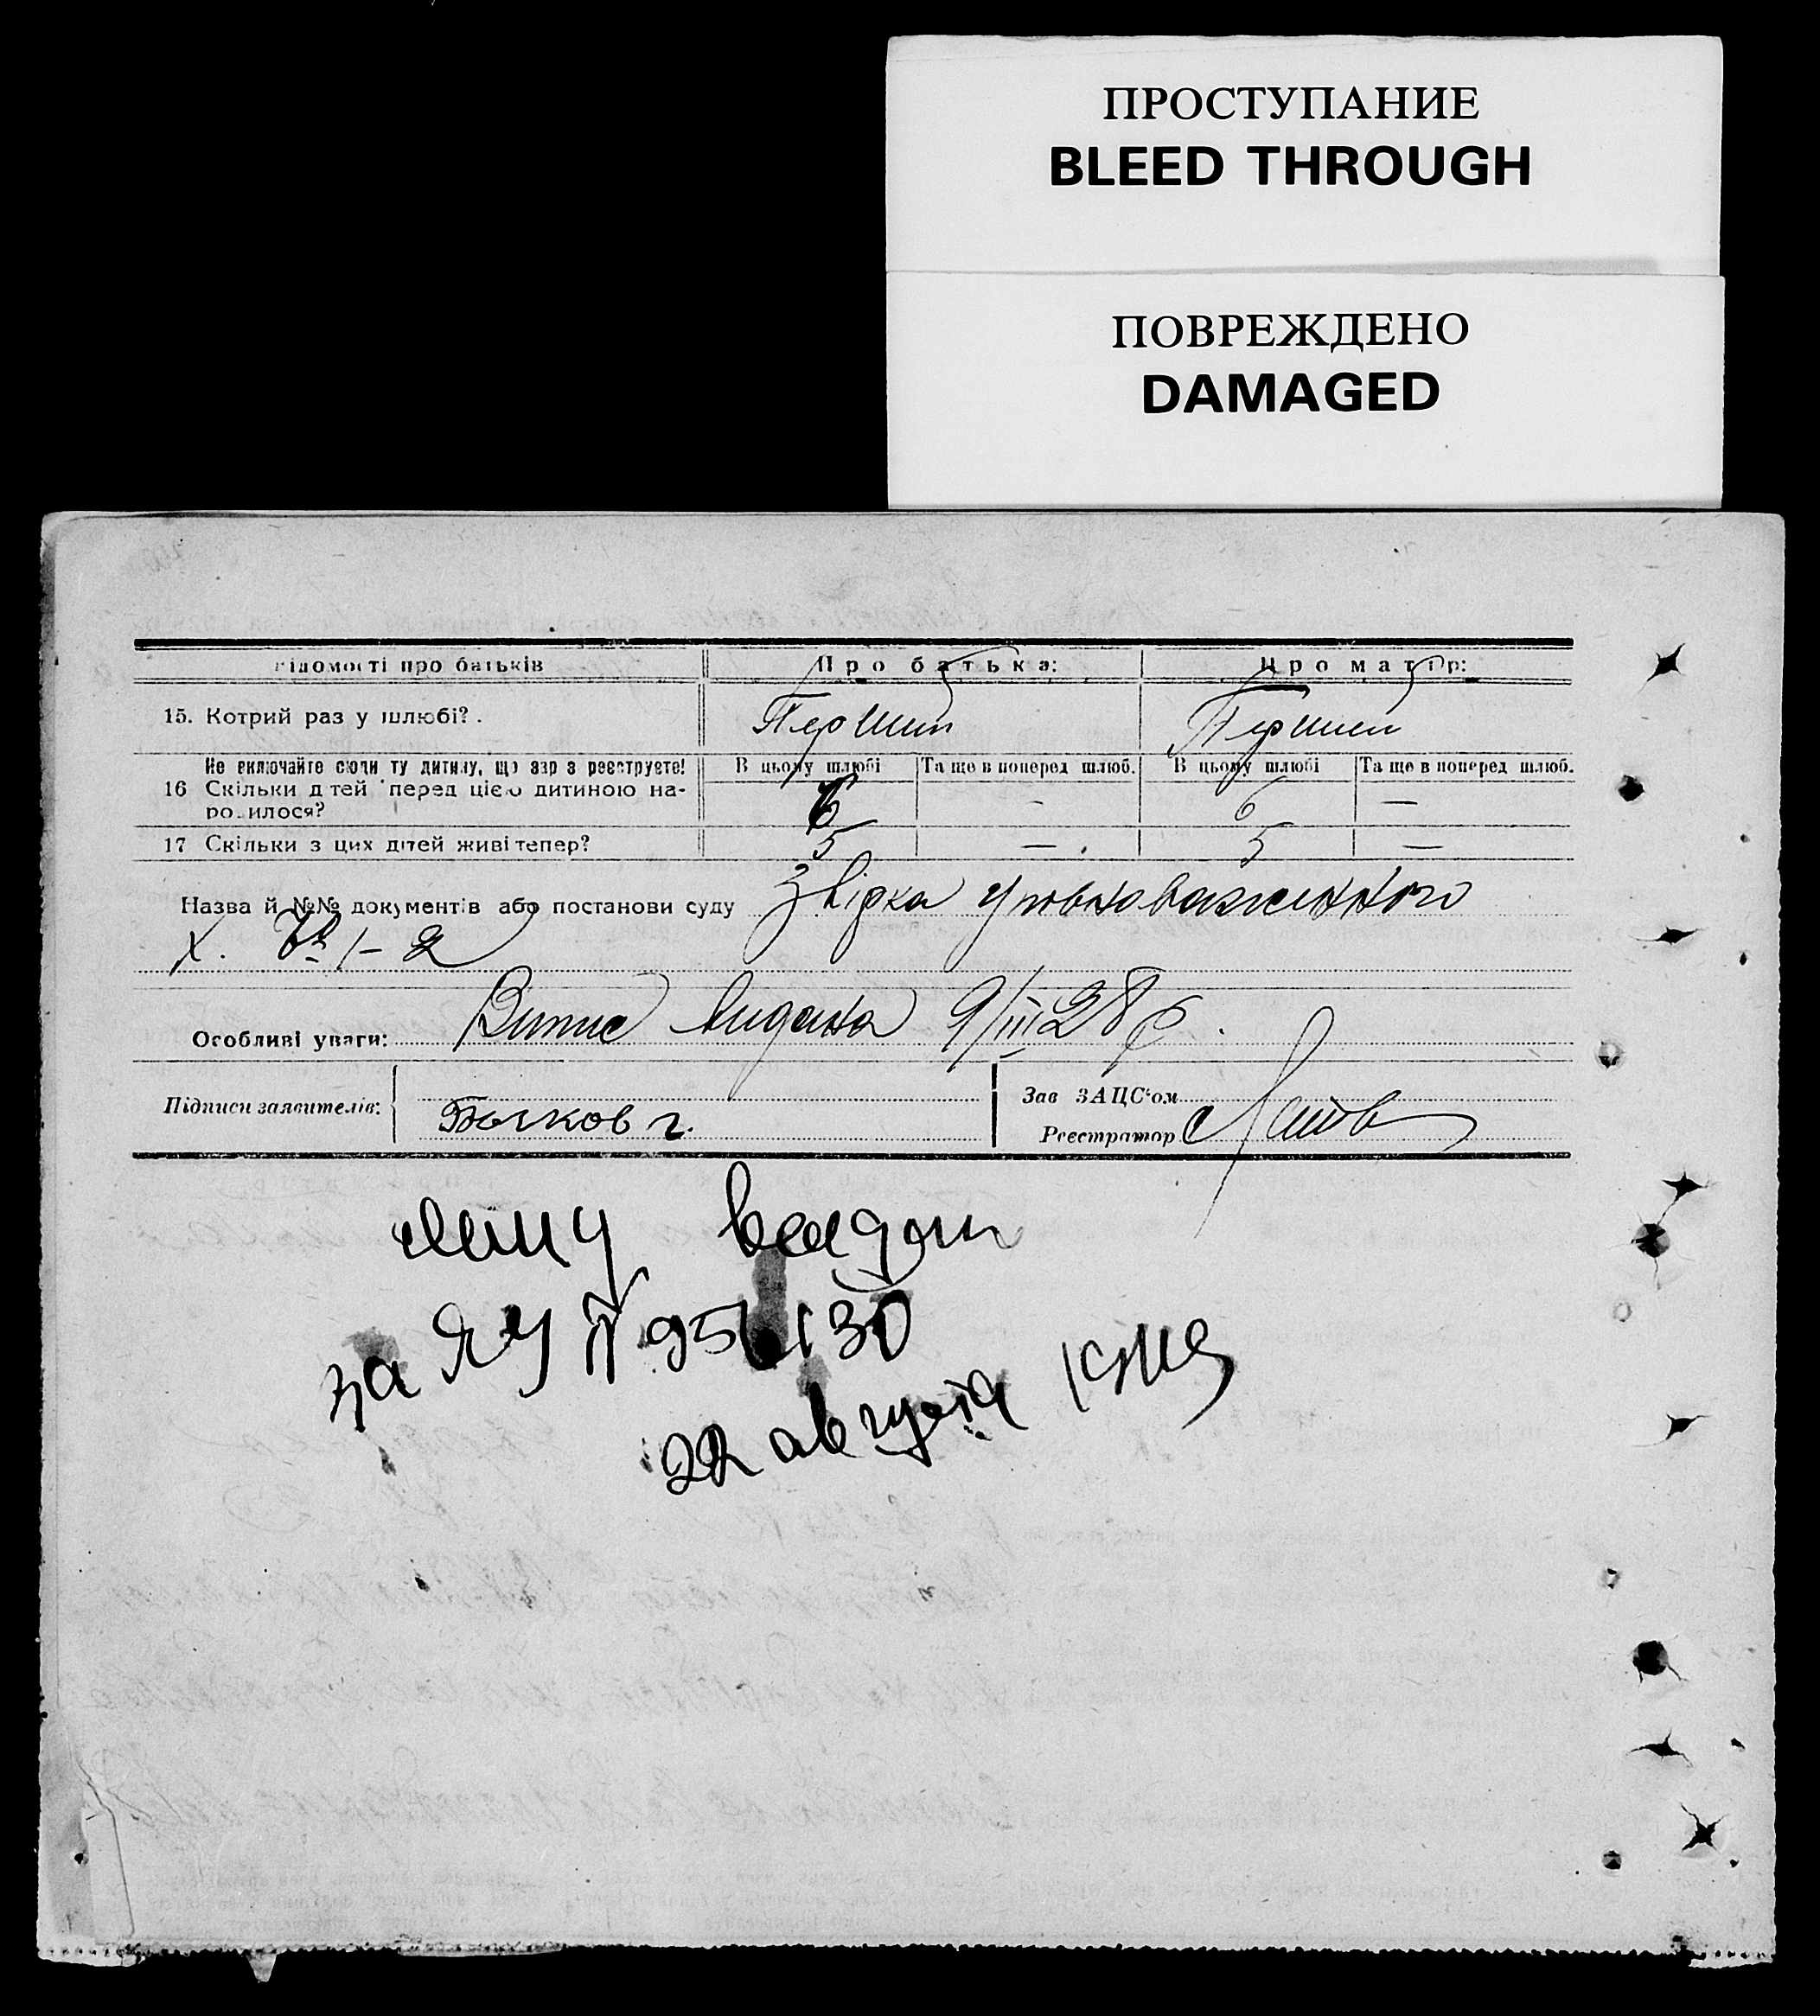 ПРОСТУПАНИЕ
BLEED THROUGH
ПОВРЕЖДЕНО
DAMAGED
відомості про батьків Про батька: Про матір:
15. Котрий раз у шлюбі? . Перший Перший
Не включайте сюди ту дитину, що зар з реєструєте! В цьому шлюбі Та ще в поперед шлюб. В цьому шлюбі Та ще в поперед шлюб.
16 Скільки д тей перед цією дитиною на- 6 – 6 –
ро илося?
17 Скільки з цих дітей живі тепер? 5 – . 5 –
Назва й №№ документів або постанови суду Звірка уповноваженного
Х. № 1–2
Особливі уваги: Випис видана 9/III 28 р.
Підписи заявителів: Зав ЗАЦС'ом
Бычков г. Реєстратор
выдан
за ЯУ № 951130
22 августа